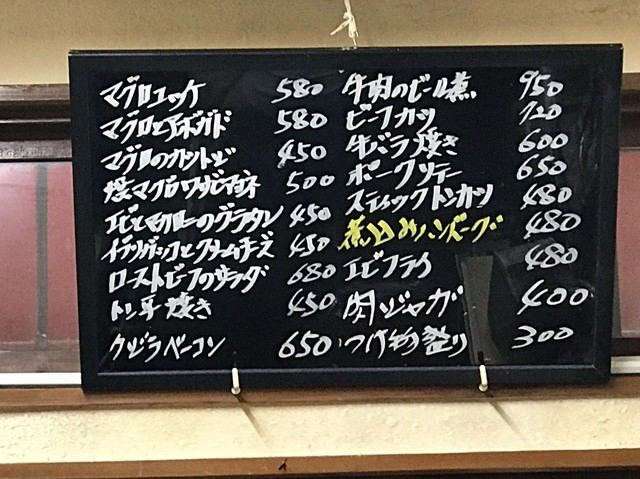 マグロユッケ 580
マグロとアボガド 580
マグロのカツトジ 450
焼マグロワサビマヨネ 500
エビとマカロニのグラタン 450
イブリガッコとクリームチーズ 450
ローストビーフのサラダ 680
トン平焼き 450
クジラベーコン 650
牛肉のビール煮 950
ビーフカツ 720
牛バラ焼き 600
ポークソテー 650
スティックトンカツ 480
煮込みハンバーグ 480
エビフライ 480
肉ジャガ 400
つけ物盛り 300